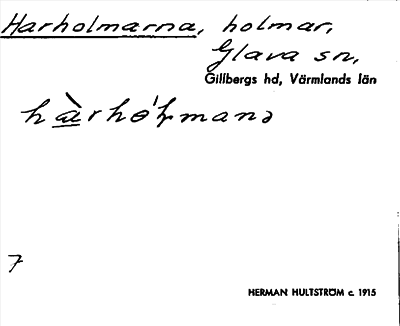 Harholmarna, holmar,
Glava sn,
Gillbergs hd, Värmlands län
7
HERMAN HULTSTRÖM c. 1915